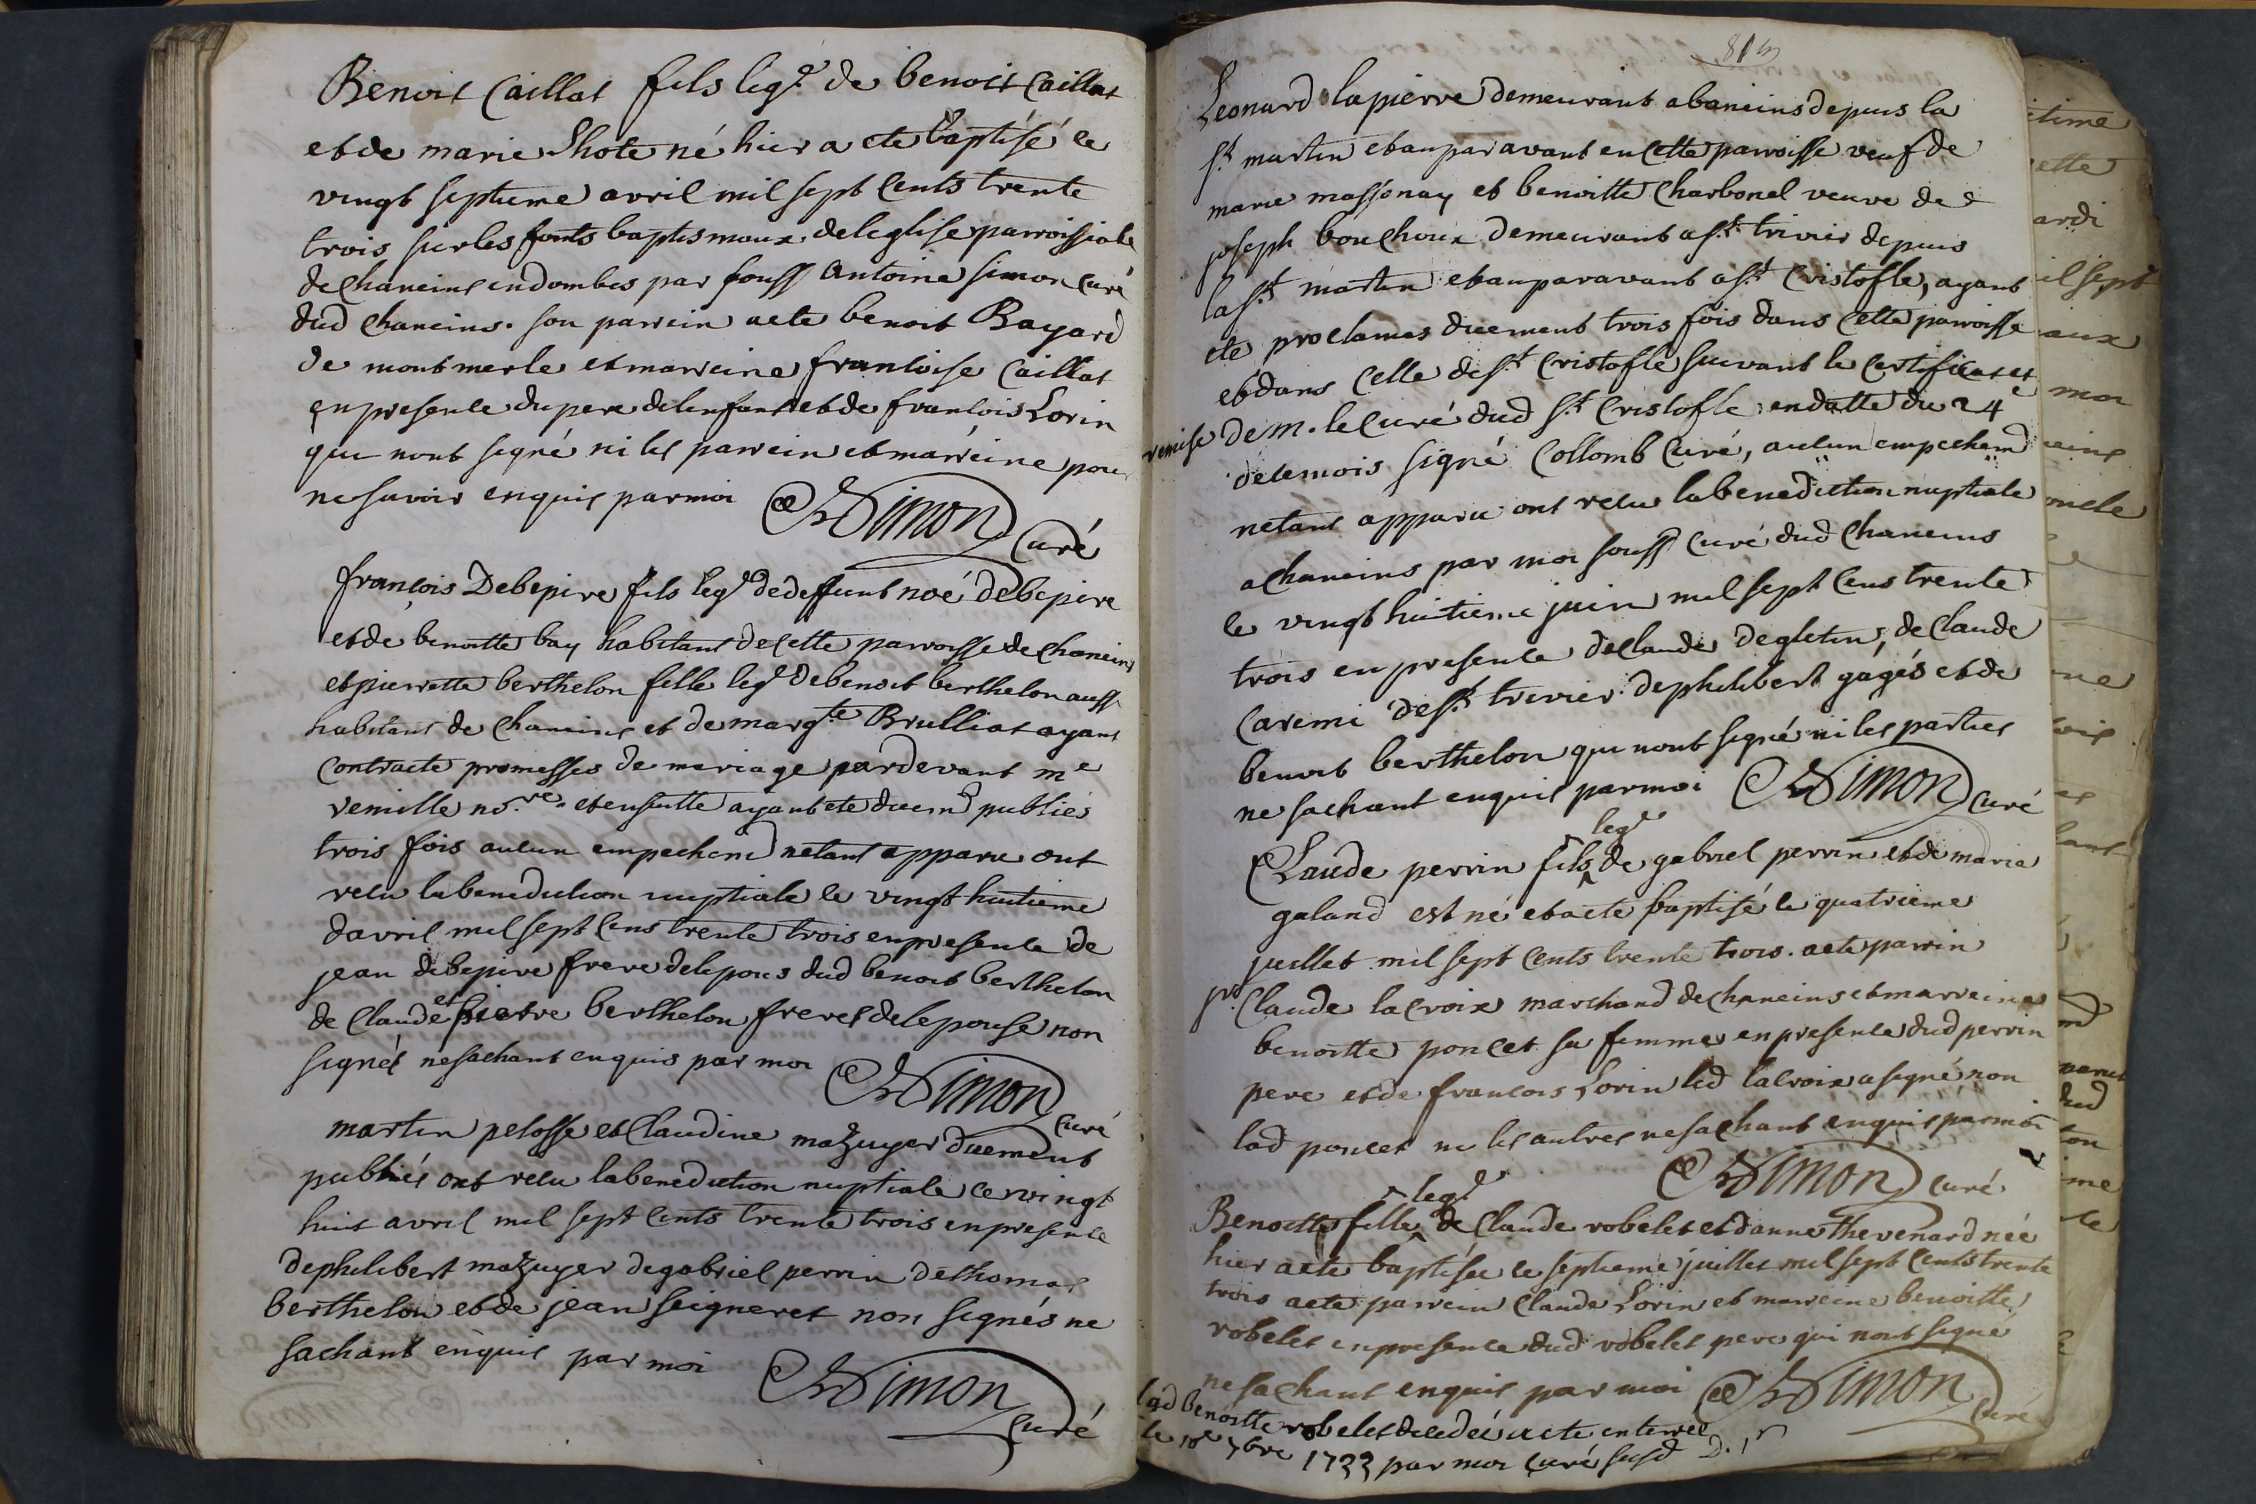 Benoit Caillat fils leg.e de benoit Caillat
et de marie Lhote né hier a eté baptisé le
vingt septieme avril mil sept Cents trente
trois sur les fonts baptismaux de leglise parroissiale
de chaneins en dombes par souss Antoine Simon curé
dud chaneins. son parrein a ete benoit Bayard
de montmerle et marreine francoise Caillat
en presence du pere de lenfant et de francois Lorin
qui nont signé ni les parrein et marreine pour
ne savoir enquis par moi Simon
Curé
françois Debepire fils leg.e de deffunt noé debepire
et de benoitte bay habitant de cette parroisse de chaneins
et pierrette berthelon fille leg.e de benoit berthelon auss
habitant de Chaneins et de marg.te Brulliat ayant
Contracté promesses de mariage pardevant m.e
vermille no.re et ensuitte ayant ete duem.t publiés
trois fois aucun empechem netant apparu ont
recu la benediction nuptiale le vingt huitieme
davril mil sept Cens trente trois en presence de
jean debepire frere de lepoux dud benoit berthelon
de Claude et pierre berthelon freres de lepouse non
signés ne sachant enquis par moi
Simon
curé
martin pelosse et Claudine mazuyer duement
publiés ont recu la benediction nuptiale ce vingt
huit avril mil sept Cents trente trois en presence
de philibert mazuyer de gabriel perrin de thomas
berthelon et de jean seigneret non signés ne
sachant enquis par moi Simon
Curé
Leonard lapierre demeurant a baneins depuis la
s.t martin et auparavant en cette parroisse veuf de
marie massonay et benoitte Charbonel veuve de
joseph bouchoux demeurant a s.t trivier depuis
la s.t martin et auparavant a s.t Cristofle, ayant
eté proclames duement trois fois dans cette parroisse
et dans Celle de s.t Cristofle suivant le Certificat et
remise de m. le Curé dud s.t Cristofle en datte du 24e
de ce mois signé Collomb Curé, aucun empechem
netant apparu ont recu la benediction nuptiale
a Chaneins par moi souss curé dud Chaneins
le vingt huitieme juin mil sept Cens trente
trois en presence de Claude degletin, de Claude
Caremi de s.t trivier de philibert gagés et de
benoit berthelon qui nont signé ni les parties
ne sachant enquis par moi Simon curé
leg.e
Claude perrin fils de gabriel perrin et de maria
galand est né et a ete baptisé le quatrieme
juillet mil sept Cents trente trois. a ete parrin
Claude lacroix marchand de chaneins et marreine
benoitte poncet sa femme en presence dud perrin
pere et de francois Lorin led lacroix a signé non
lad poncet ni les autres ne sachant enquis par moi
Simon curé
leg.e
Benoitte fille de Claude robelet et danne thevenard née
hier a eté baptisée le septieme juillet mil sept Cents trente
trois a ete parrein Claude Lorin et marreine benoitte
robelet en presence dud robelet pere qui nont signé
ne sachant enquis par moi Simon
curé
lad benoitte robelet decedée a ete enterrée
le 7bre 1733 par moi Curé susd